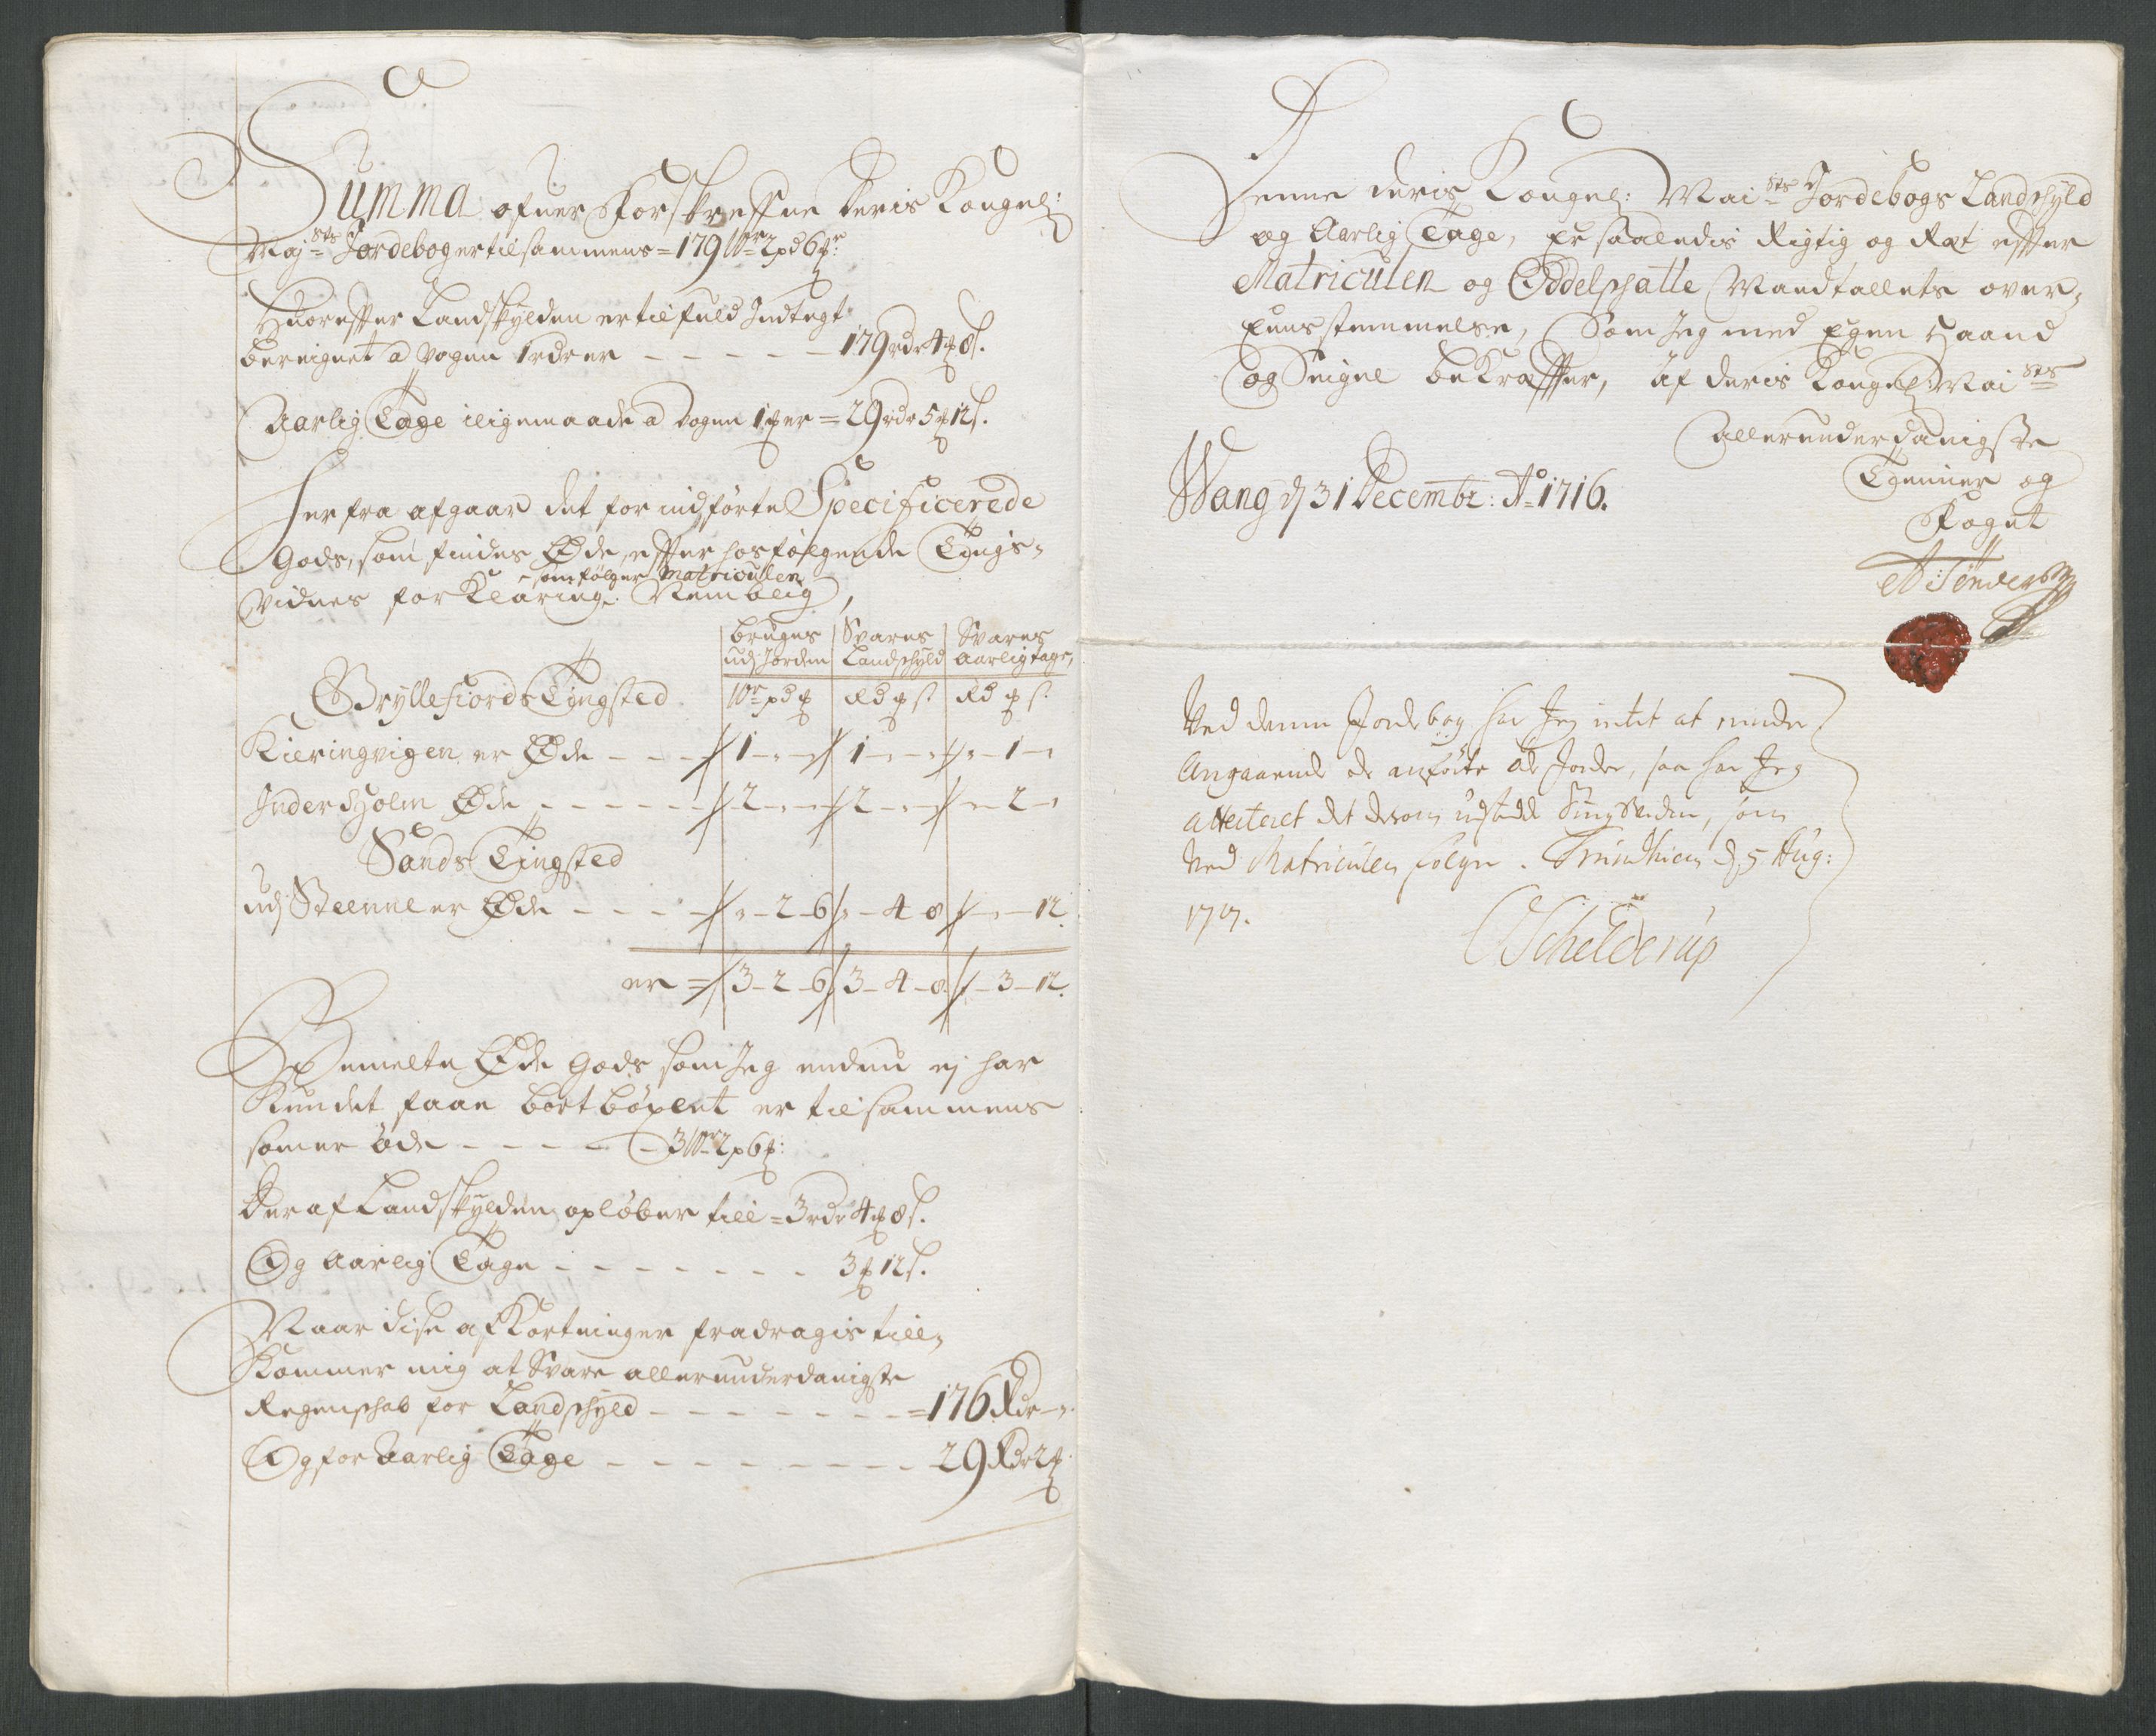 Summa ofuer Forskrefne Deris Kongel:
Maj:sts Jordebog er tilsammens = 179 W:r 2 pd 6 ℔r:
Huorefter Landskylden er til fuld Indtegt
bereignet a vogen 1 rdr er - - - - - 179 rdr 4 ℔ 8 s.
Aarlig Tage iligemaade a vogen 1 ℔ er = 29 rdr 5 ℔ 12 s.
Herfra afgaar det for indførte Specificerede
Gods, som findes Øde, efter hosfølgende Tings-
som følger Matriculen
vidnes forKlaring. Nemblig,
bruges Svares Svares
udj Jorden Landschyld Aarlig tage,
Gryllefiords Tingsted W:r pd ℔ Rd ℔ s. Rd ℔ s.
Kieringvigen er Øde - - - 1 - „ - „ 1 - „ - „ „ - 1 - „
Inder Holm Øde - - - - - - 2 - „ - „ 2 - „ - „ „ - 2 - „
Sands Tingsted
udj Steenne er Øde - - - - - „ - 2 - 6 „ - 4 - 8 „ - „ - 12.
er = 3 - 2 - 6 3 - 4 - 8 „ - 3 - 12.
Bemelte Øde Gods som Jeg endnu ej har
Kundet faae bortbøxlet er tilsammens
som er øde - - - - - 3 W:r 2 p 6 ℔:
Deraf Landskylden opløber till = 3 rdr 4 ℔ 8 s.
Og Aarlig Tage - - - - - - - 3 ℔ 12 s.
Naar dise afKortninger fradragis till-
Kommer mig at Svare allerunderdanigste
Regenschab for Landschyld - - - - - - - = 176 Rdr - „.
Og for Aarlig Tage - - - - - - - - - 29 Rdr 2 ℔.
Denne Deris Kongel: Mai:sts Jordebogs Landschyld
og Aarlig Tage, er saaledis Rigtig og Ræt efter
Matriculen og Oddelschatte Mandtallets over-
eensstemmelse, Som Jeg med Egen Haand
og Seigne beKræfter, af Deris Kongel: Mai:sts
allerunderdanigste
Tienner og
Foget
Wang d 31 Decembr: Ao 1716.
A Tønder
Ved denne Jordebog har Jeg intet at minde
Angaaende de anførte øde Jorder, saa har Jeg
atteteret det derom udstede Tingsviden, som
ved Matriculen følger. Trundhiem d 5 Aug:
1717.
Schelderup